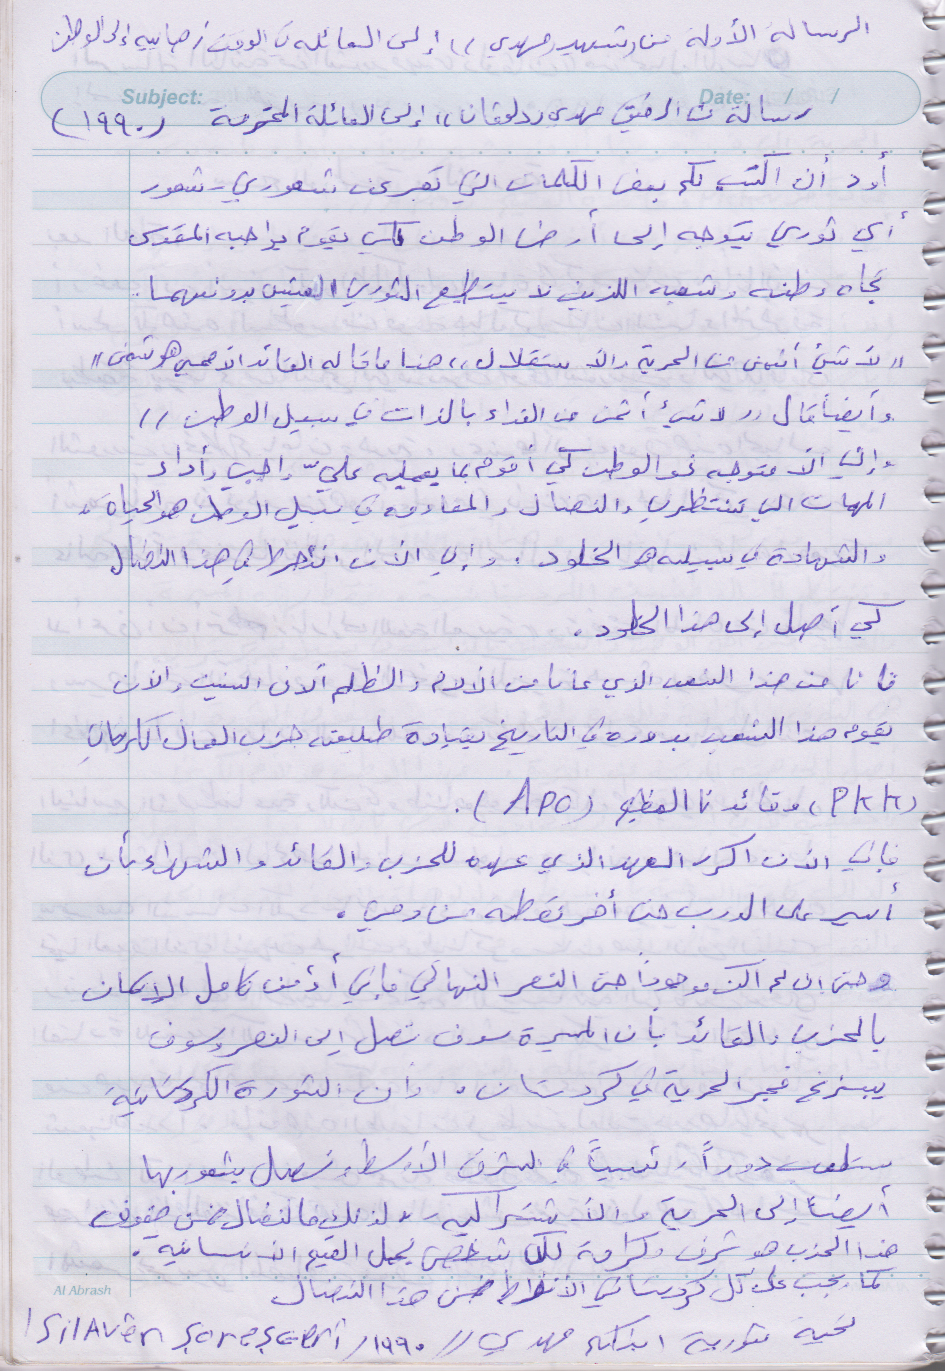 الرسالة الأولة من الشهيد (مهدي) // إلى العائلة في الوقت ذهابه إلى الوطن
Subject: Date: / /
رسالة من الرفيق مهدي زدلوقان // إلى العائلة المحترمة (١٩٩٠)
أود أن اكتب لكم بعض الكلمات التي تعبر عن شعوري، شعور
أي ثوري يتوجه إلى أرض الوطن كي يقوم بواجبه المقدس
تجاه وطنه وشعبه اللذين لا يستطيع الثوري العيش بدونهما.
« لا شيء أثمن من الحرية والاستقلال » هذا ما قاله القائد الأممي هوشمن »
وأيضاً قال « لا شيء أثمن من الفداء بالذات في سبيل الوطن //
وإني الآن متوجه نحو الوطن كي أقوم بما يمليه عليّ واجبي وأداء
المهمات التي تنتظرني والنضال والمقاومة في سبيل الوطن هو الحياة،
والشهادة في سبيله هو الخلود. وإني الآن انخرط في هذا النضال
كي أصل إلى هذا الخلود.
فأنا من هذا الشعب الذي عانا من الألام والظلم آلاف السنين والآن
يقوم هذا الشعب بدوره في التاريخ بقيادة طليعته حزب العمال الكردستاني
(PKK) وقائدنا العظيم (APO).
فإني الآن اكرر العهد الذي عهده للحزب والقائد والشهداء بأن
أسير على الدرب حتى أخر نقطة من دمي.
وحتى إن لم اكن موجوداً حتى النصر النهائي فإني أؤمن كامل الإيمان
بالحزب والقائد بأن المسيرة سوف تصل إلى النصر وسوف
يبزغ فجر الحرية في كردستان. وان الثورة الكردستانية
ستلعب دوراً رئيسياً في الشرق الأوسط وتصل بشعوبها
أيضاً إلى الحرية والاشتراكية، لذلك فالنضال ضمن صفوف
هذا الحزب هو شرف وكرامة لكل شخص يحمل القيم الانسانية.
كما يجب على كل كردستاني الأنخراط ضمن هذا النضال
تحية ثورية ابنكم مهدي // ١٩٩٠/ Silavên Şoreşgerî
Al Abrash